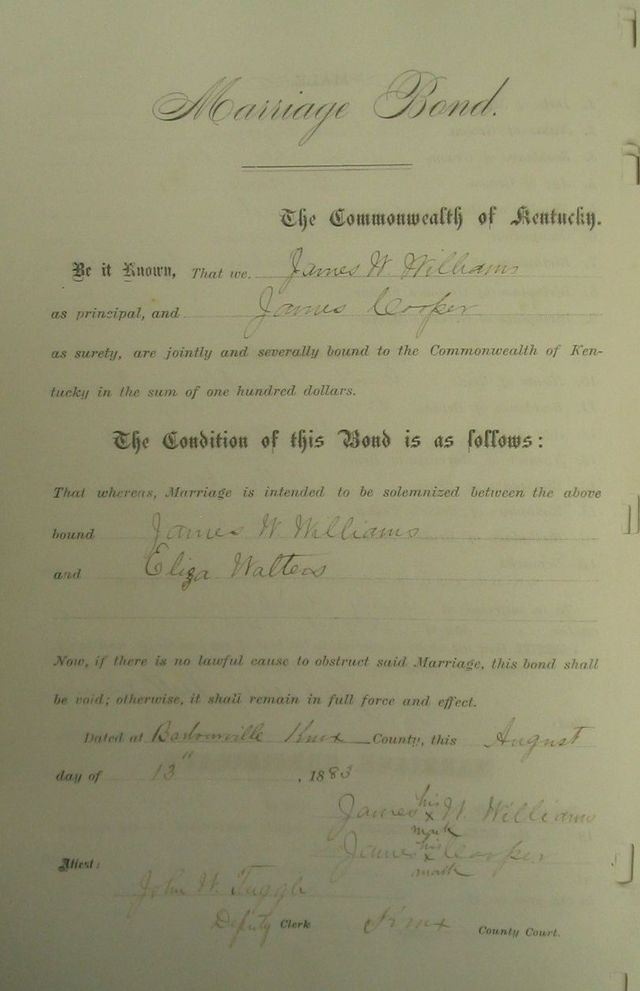 Marriage Bond.
The Commonwealth of Kentucky.
Be it Known, That we James W Williams
as principal, and James Cooper
as surety, are jointly and severally bound to the Commonwealth of Ken-
tucky in the sum of one hundred dollars.
The Condition of this Bond is as follows:
That whereas, Marriage is intended to be solemnized between the above
bound James W Williams
and Eliza Walters
Now, if there is no lawful cause to obstruct said Marriage, this bond shall
be void; otherwise, it shall remain in full force and effect.
Dated at Barbourville Knox County, this August
day of 13", 1883
James his x mark W. Williams
James his x mark Cooper
Attest:
John W. Tuggle
Deputy Clerk Knox County Court.